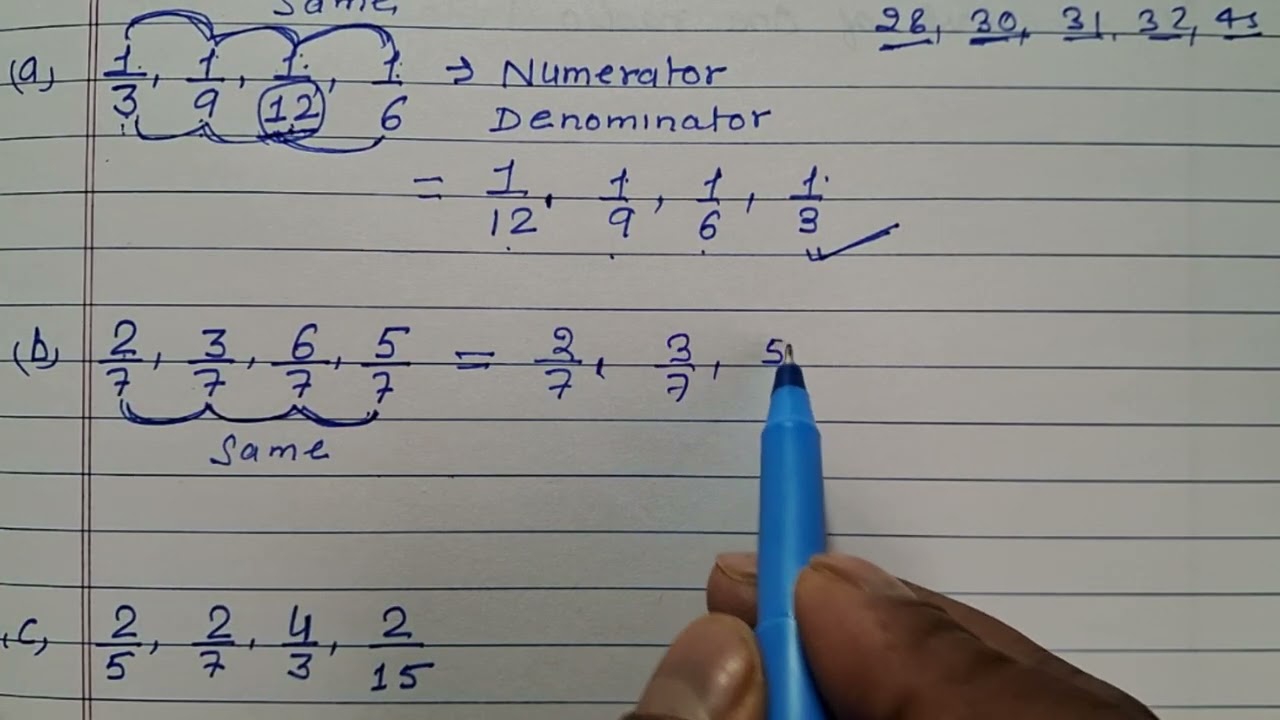 Same
28, 30, 31, 32, 45
(a) 1/3, 1/9, 1/12, 1/6 → Numerator
Denominator
= 1/12, 1/9, 1/6, 1/3
(b) 2/7, 3/7, 6/7, 5/7 = 2/7, 3/7, 5
Same
(c) 2/5, 2/7, 4/3, 2/15